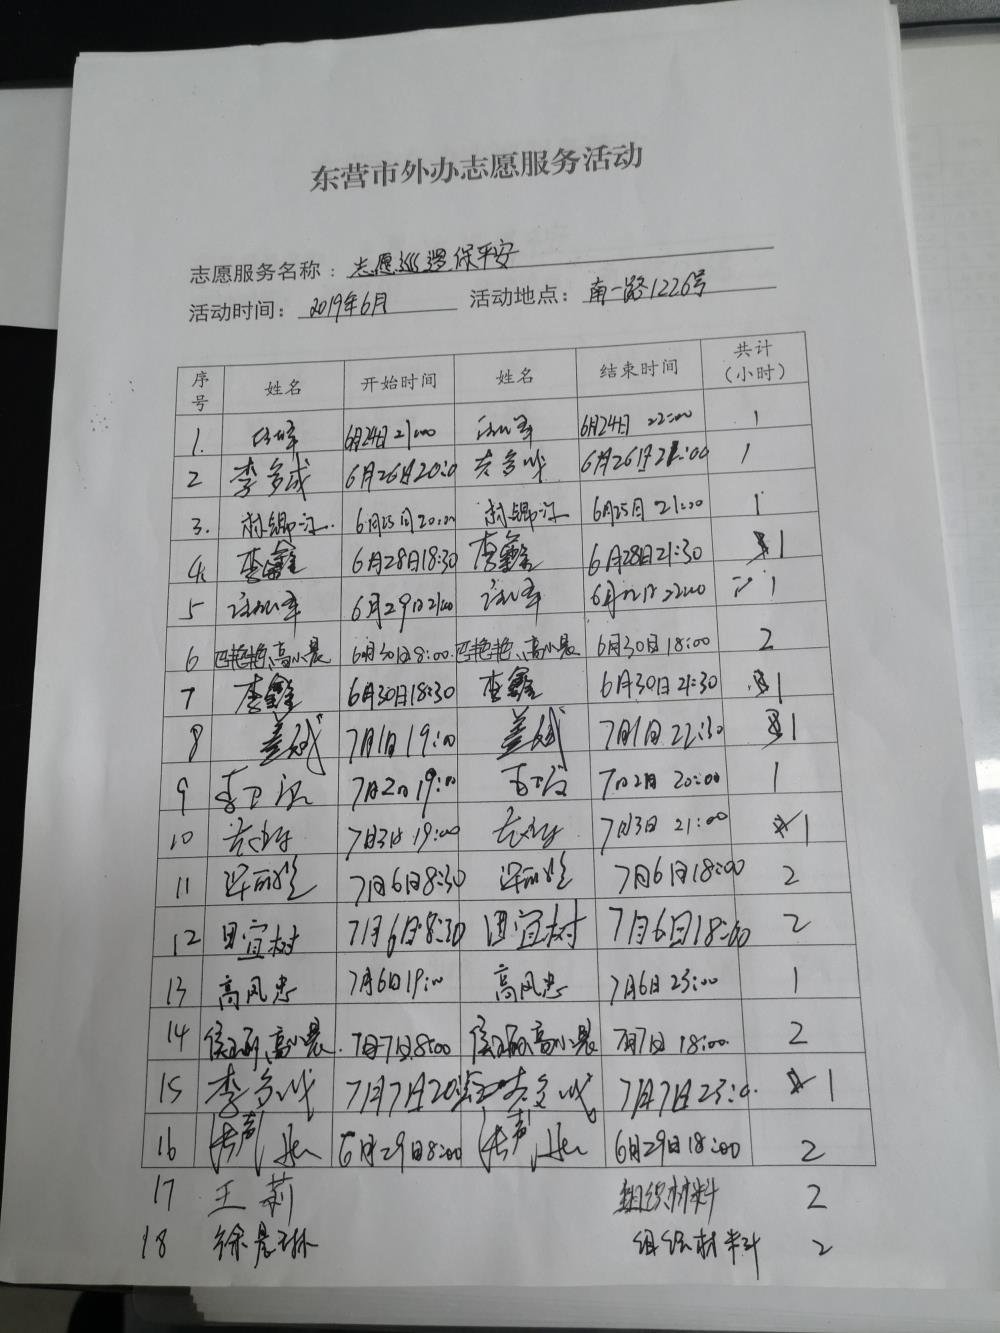 东营市外办志愿服务活动
志愿服务名称：志愿巡逻保平安
活动时间：2019年6月 活动地点：南一路1226号
序号 姓名 开始时间 姓名 结束时间 共计（小时）
1. 6月24日 21:00 6月24日 22:00 1
2 李多成 6月26日20:0 李多成 6月26日21:00 1
3. 6月25日20:00 6月25日 21:00 1
4 李鑫 6月28日18:30 李鑫 6月28日21:30 1
5 6月29日21:00 22:00 1
6 巴艳艳、高小晨 6月30日8:00 巴艳艳、高小晨 6月30日18:00 2
7 李鑫 6月30日18:30 李鑫 6月30日21:30 1
8 盖斌 7月1日19:00 盖斌 7月1日22:30 1
9 7月2日19:00 7月2日 20:00 1
10 7月3日 19:00 7月3日 21:00 1
11 7月6日8:30 7月6日18:00 2
12 田宜树 7月6日8:30 田宜树 7月6日18:00 2
13 高风忠 7月6日19:00 高风忠 7月6日23:00 1
14 高小晨 7月7日8:00 高小晨 7月7日 18:00 2
15 李多成 7月7日20: 李多成 7月7日23:0 1
16 6月29日8:00 6月29日18:00 2
17 王莉 组织材料 2
18 徐晨琳 组织材料 2